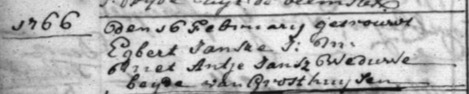 1766
Den 16 Februarij getrouwt
Egbert Janske J: M:
met Antje Jansz Weduwe
beyde van Grosthuysen